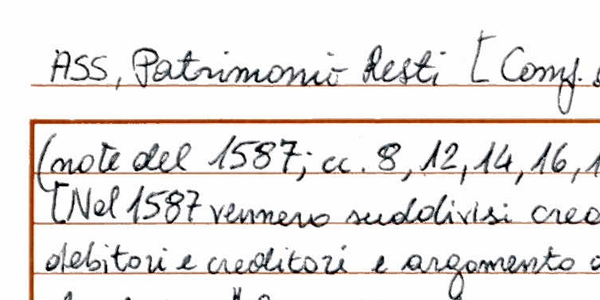 ASS, Patrimonio Resti [Comf.
(note del 1587; cc. 8, 12, 14, 16, 1
[Nel 1587 vennero suddivisi cred
debitori e creditori e argomento